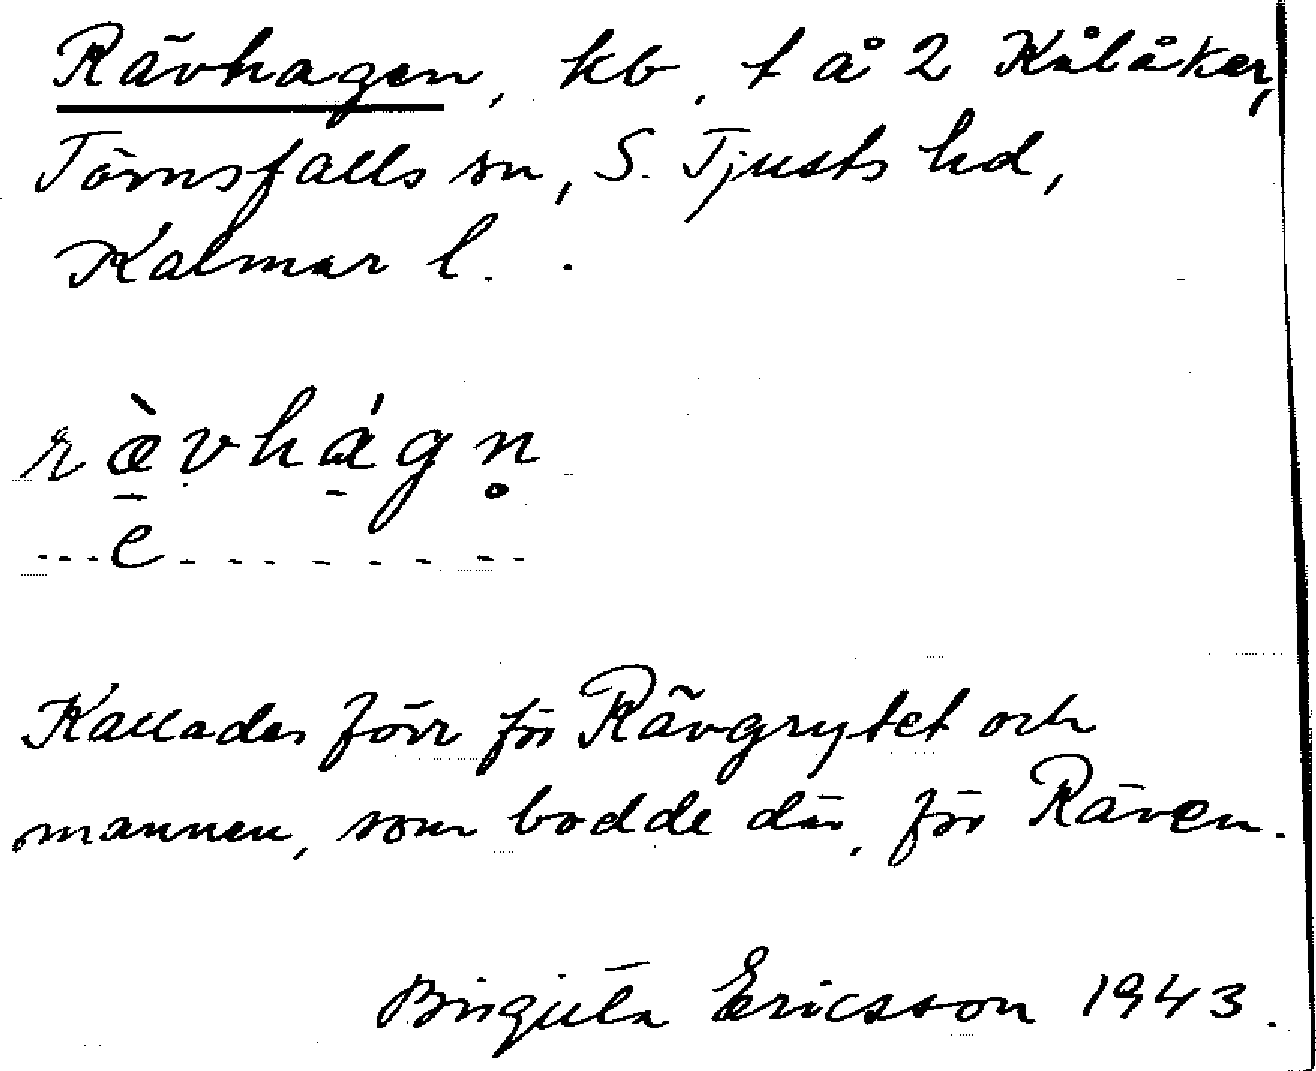 Rävhagen, kb, t å 2 Kålåker,
Törnsfalls sn, S. Tjusts hd,
Kalmar l.
ræ̀vhágn̥
---e-------
Kallades förr för Rävgrytet och
mannen, som bodde där, för Räven.
Birgitta Ericsson 1943.